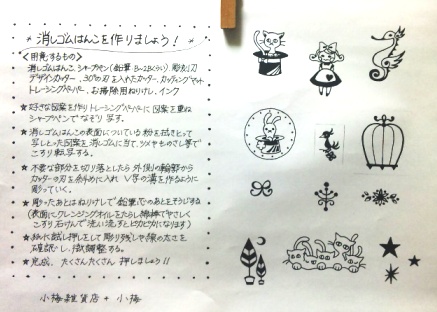 消しゴムはんこを作りましょう!
<用意するもの>
消しゴムはんこ、シャープペン(鉛筆 B~2Bくらい) 彫刻刀
デザインカッター、30°の刃を入れたカッター、カッティングマット
トレーシングペーパー、お掃除用ねりけし、インク
★好きな図案を作りトレーシングペーパーに図案を重ね
シャープペンでなぞり写す。
★消しゴムはんこの表面についている粉を拭きとって
写しとった図案を消しゴムに当て、ツメやものさし等で
こすり転写する。
★不要な部分を切り落としたら外側の輪郭から
カッターの刃を斜めに入れ V字の溝を作るように
彫っていく。
★彫ったあとはねりけしで鉛筆の芯のあとをそうじする
(表面にクレンジングオイルをたらし綿棒でやさしく
こすり石けんで洗い流すとピカピカになります)
★紙に試し押しをして彫り残しや線の太さを
確認し、微調整する。
★完成、たくさんたくさん押しましょう!!
小梅雑貨店 + 小梅